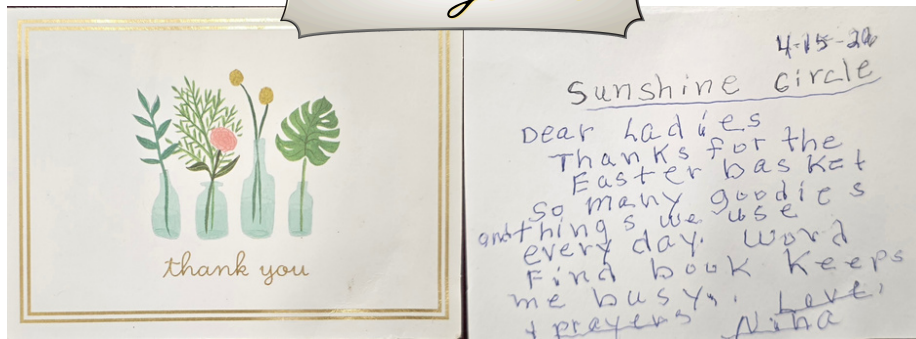 thank you
4-15-26
Sunshine Circle
Dear Ladies
Thanks for the
Easter basket
So many goodies
and things we use
every day. Word
Find book keeps
me busy. Love,
+ prayers Nina